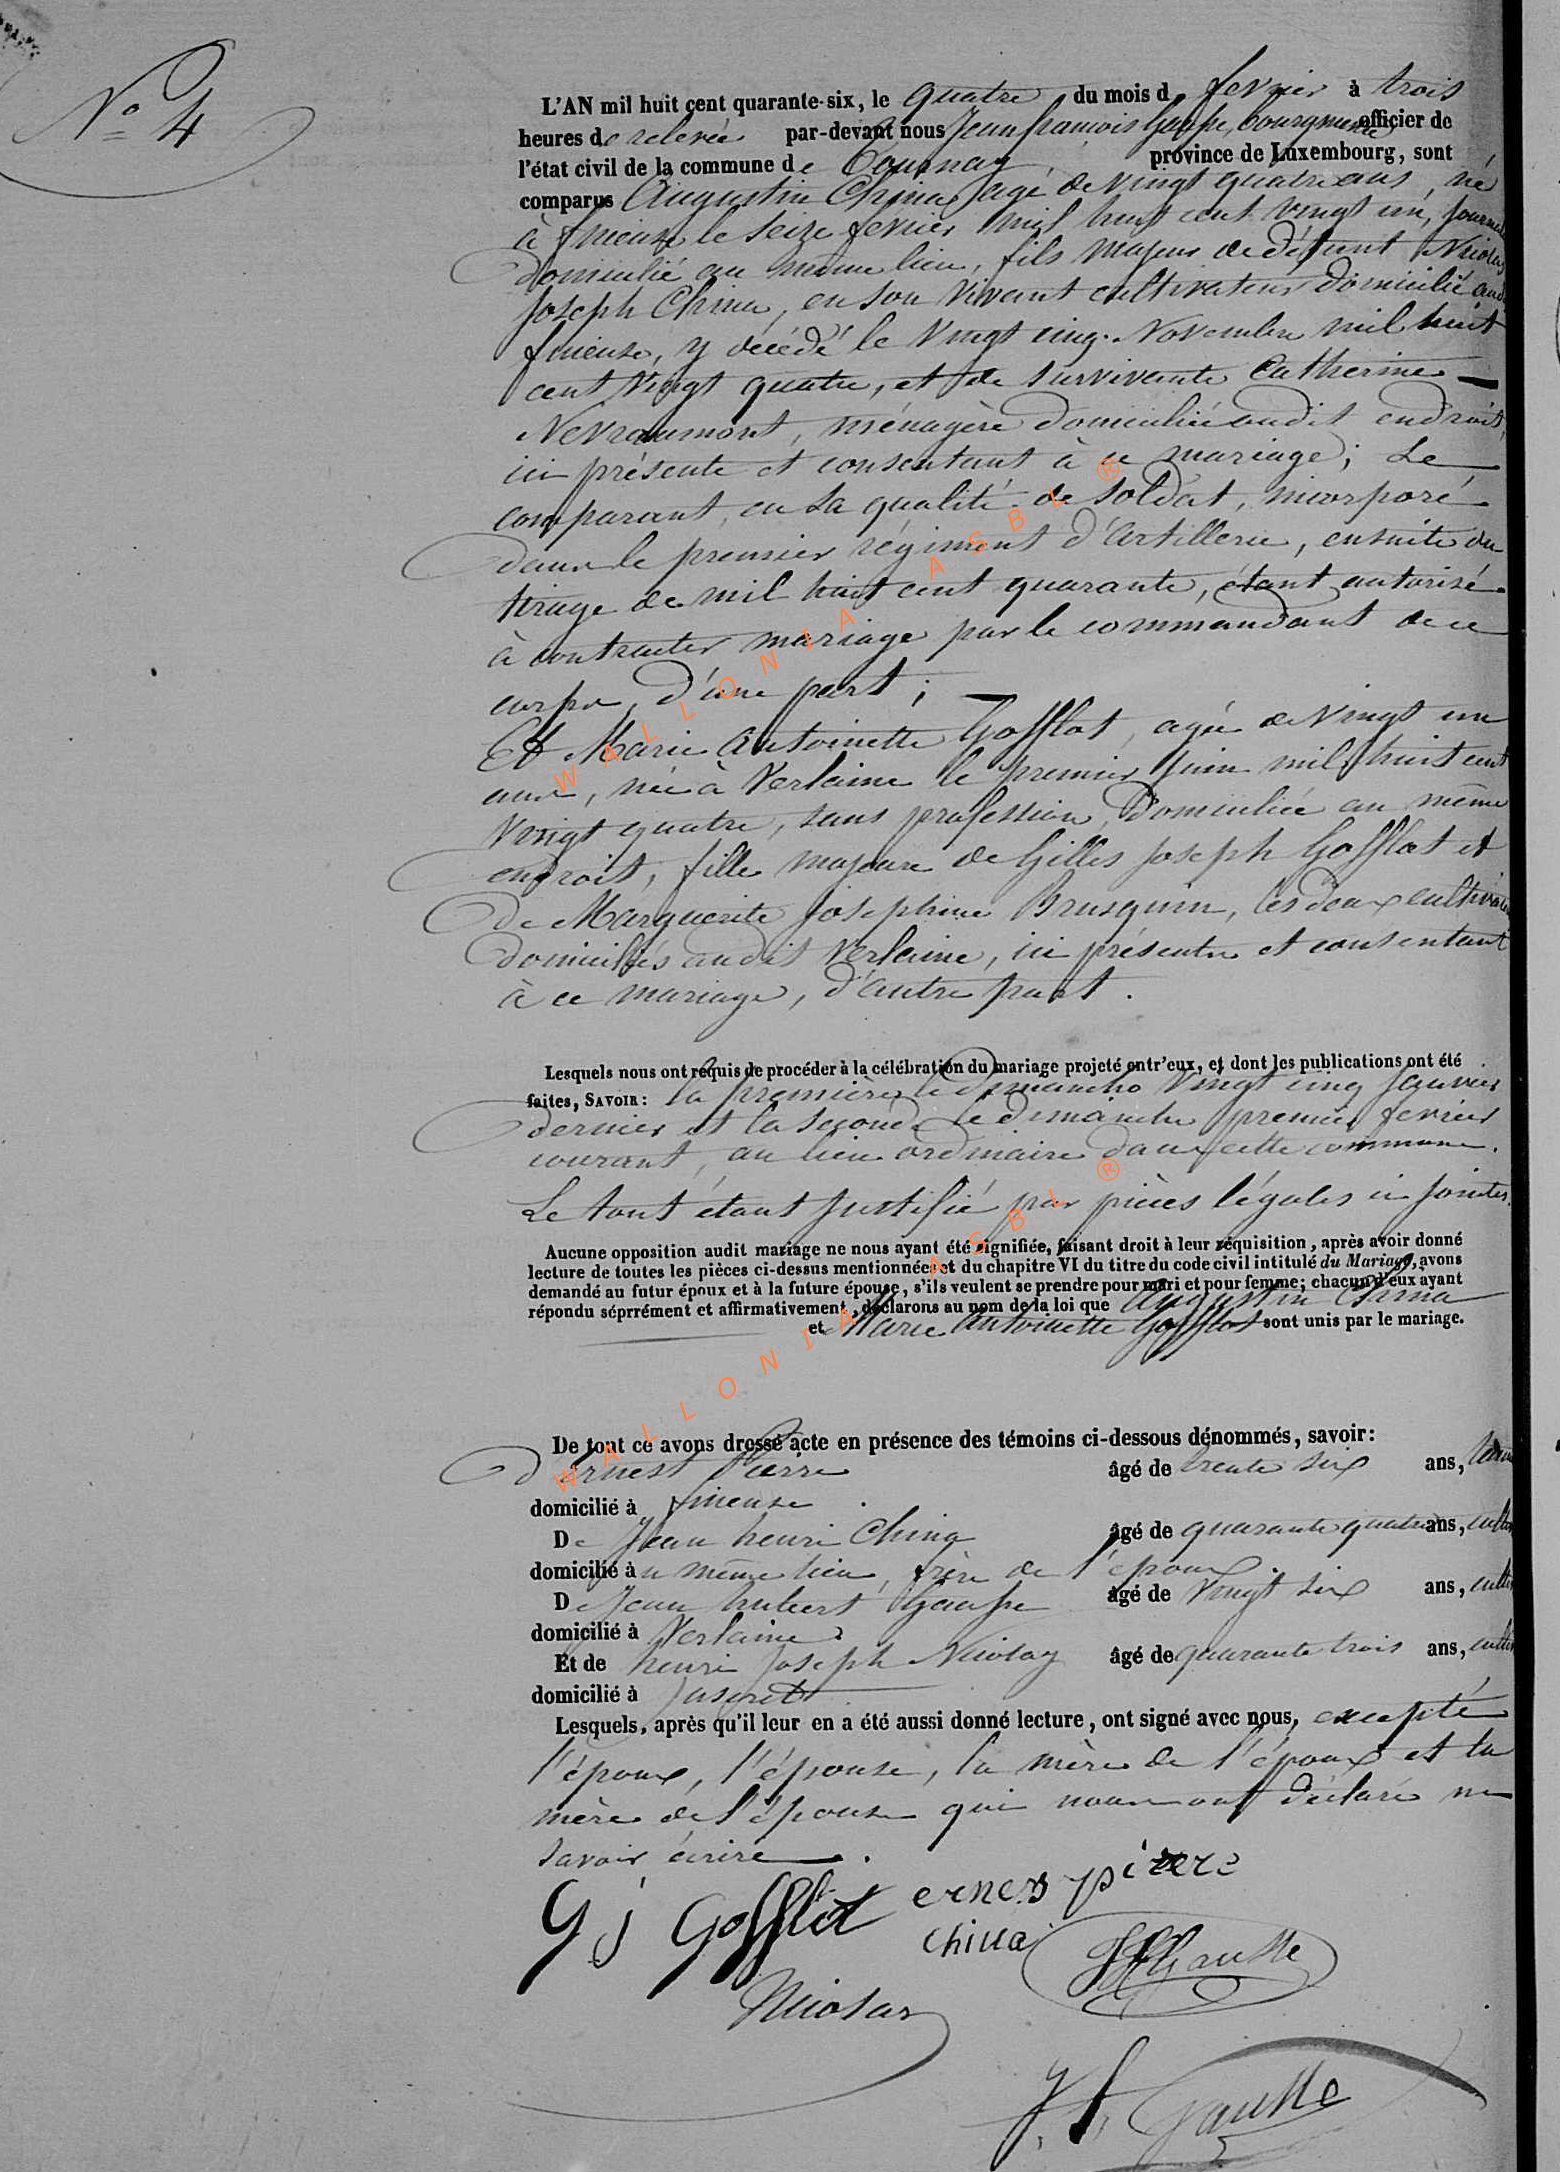 N° 4
L'AN mil huit cent quarante-six, le quatre du mois d fevrier à trois
heures de relevée par-devant nous Jean francois Gausse, bourgmestre officier de
l'état civil de la commune de Tournay province de Luxembourg, sont
comparus Augustin China, agé de vingt quatre ans, né
à le seize fevrier mil huit cent vingt un,
domicilié au même lieu, fils majeur de défunt Nicolas
Joseph China, en son vivant cultivateur domicilié
y décédé le vingt cinq Novembre mil huit
cent vingt quatre, et de survivante Catherine
Nevraumont, ménagère domiciliée audit endroit,
ici présente et consentant à ce mariage; Le
comparant, en sa qualité de soldat, incorporé
dans le premier régiment d'artillerie, ensuite du
tirage de mil huit cent quarante, étant autorisé
à contracter mariage par le commandant de ce
corps, d'une part;
Et Marie Antoinette Gofflot, agée de vingt un
ans, née à Verlaine le premier Juin mil huit cent
vingt quatre, sans profession, domiciliée au même
endroit, fille majeure de Gilles Joseph Gofflot et
de Marguerite Josephine Brusquin, les deux
domiciliés audit Verlaine, ici présents et consentant
à ce mariage, d'autre part.
Lesquels nous ont requis de procéder à la célébration du mariage projeté entr'eux, et dont les publications ont été
faites, SAVOIR: la première le dimanche vingt cinq Janvier
dernier et la seconde le dimanche premier fevrier
courant, au lieu ordinaire dans cette commune.
Le tout étant justifié par pièces légales ci jointes.
Aucune opposition audit mariage ne nous ayant été signifiée, faisant droit à leur réquisition, après avoir donné
lecture de toutes les pièces ci-dessus mentionnées et du chapitre VI du titre du code civil intitulé du Mariage, avons
demandé au futur époux et à la future épouse, s'ils veulent se prendre pour mari et pour femme; chacun d'eux ayant
répondu séprrément et affirmativement, déclarons au nom de la loi que Augustin China
et Marie Antoinette Gofflot sont unis par le mariage.
De tout ce avons dressé acte en présence des témoins ci-dessous dénommés, savoir:
D'Ernest Pierre âgé de trente six ans,
domicilié à
De Jean henri China âgé de quarante quatre ans,
domicilié au même lieu, frère de l'époux.
De Jean hubert Gausse âgé de vingt six ans,
domicilié à Verlaine.
Et de henri Joseph Nicolay âgé de quarante trois ans,
domicilié à Juseret
Lesquels, après qu'il leur en a été aussi donné lecture, ont signé avec nous, excepté
l'époux, l'épouse, la mère de l'époux et la
mère de l'épouse qui nous ont déclaré ne
savoir écrire.
G J Gofflot ernest pierre
China JHGausse
Nicolay
J. f. Gausse
WALLONIA ASBL ®
WALLONIA ASBL ®